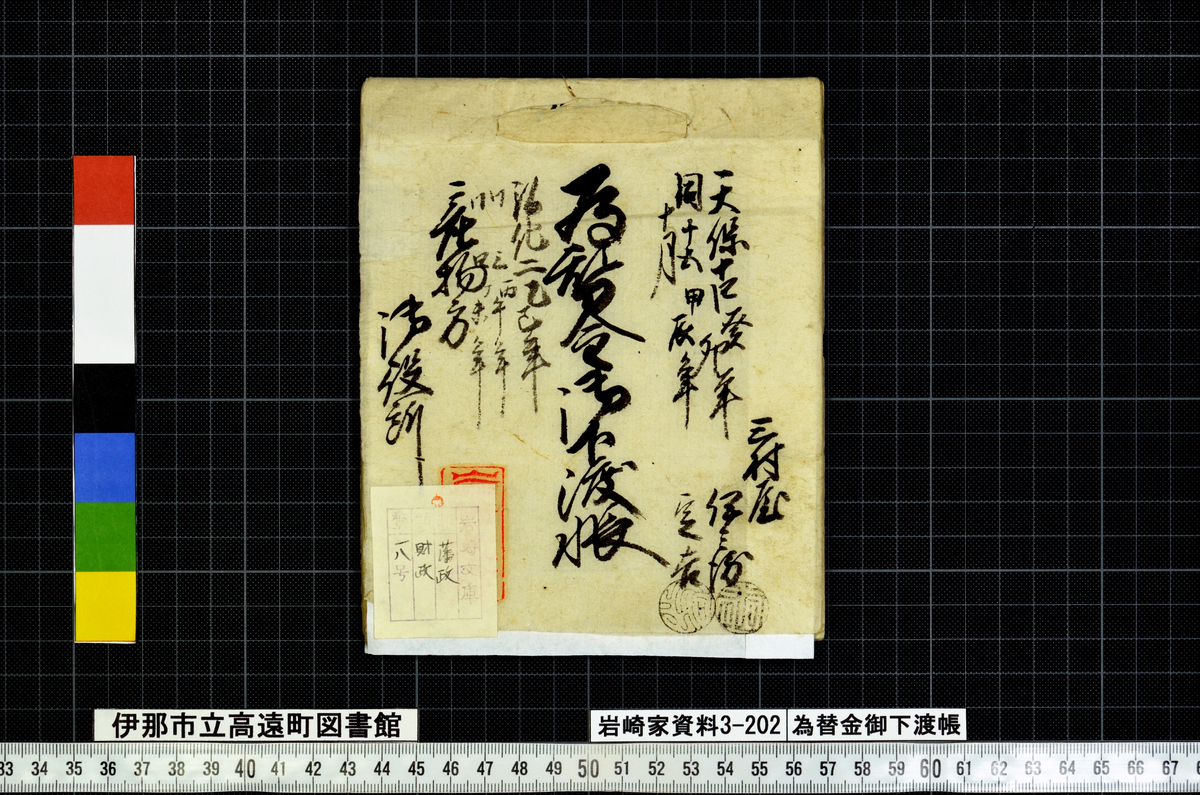 天保十四癸卯年
同十五甲辰年
十月
三村屋
定吉
為替金御下渡帳
弘化二乙巳年
三丙午年
四丁未年
産物方
御役所
文庫
藩政
財政
一八号
伊那市立高遠町図書館
岩崎家資料3-202
為替金御下渡帳
33 34 35 36 37 38 39 40 41 42 43 44 45 46 47 48 49 50 51 52 53 54 55 56 57 58 59 60 61 62 63 64 65 66 67